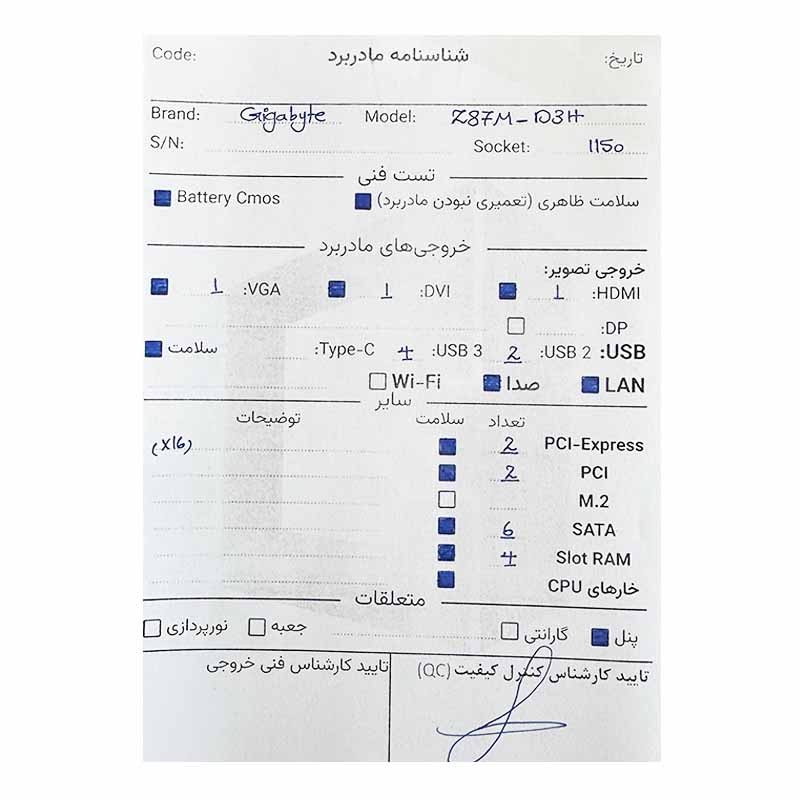 تاریخ: شناسنامه مادربرد Code:
Brand: Gigabyte Model: Z87M-D3H
S/N: Socket: 1150
تست فنی
سلامت ظاهری (تعمیری نبودن مادربرد) Battery Cmos
خروجی‌های مادربرد
خروجی تصویر:
HDMI: 1 DVI: 1 VGA: 1
DP:
USB: USB 2: 2 USB 3: 4 Type-C: سلامت
LAN صدا Wi-Fi
سایر
تعداد سلامت توضیحات
PCI-Express 2 (X16)
PCI 2
M.2
SATA 6
Slot RAM 4
خارهای CPU
متعلقات
پنل گارانتی جعبه نورپردازی
تایید کارشناس کنترل کیفیت (QC) تایید کارشناس فنی خروجی